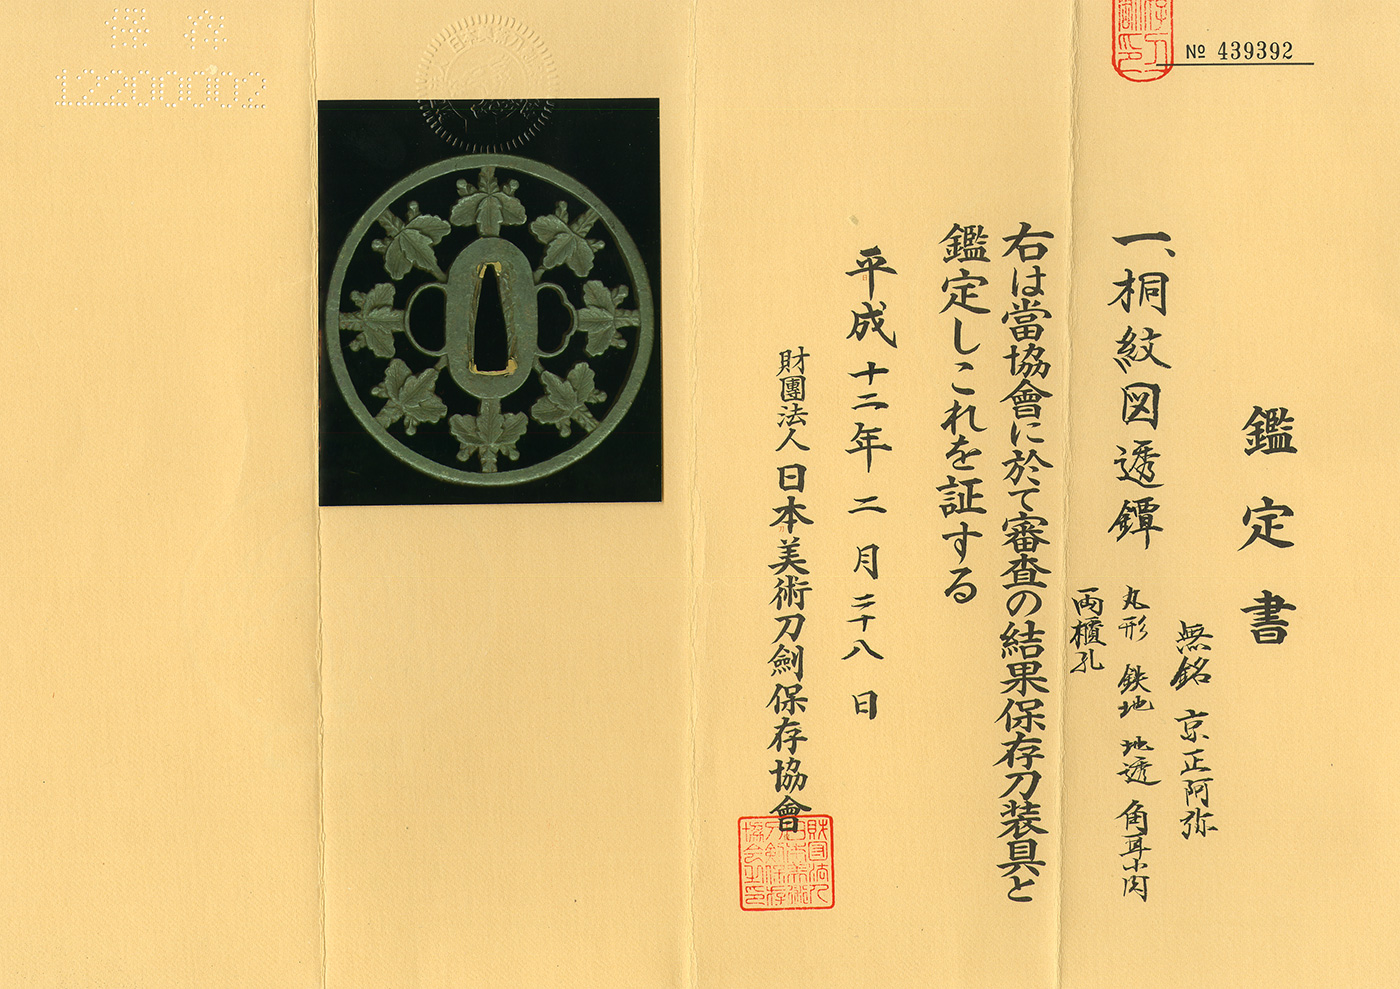 № 439392
鑑定書
一、桐紋図透鐔
無銘 京正阿弥
丸形 鉄地 地透 角耳小肉
両櫃孔
右は當協會に於て審査の結果保存刀装具と
鑑定しこれを証する
平成十二年二月二十八日
財團法人日本美術刀劍保存協會
保存
12200002